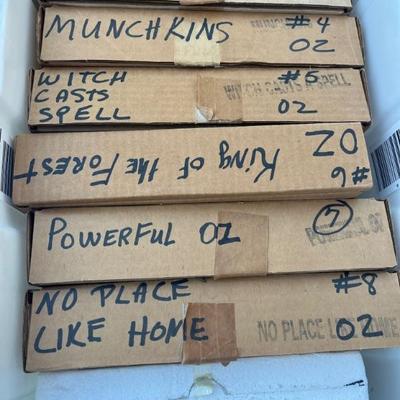 MUNCHKINS #4
OZ
WITCH #5
CASTS
SPELL OZ
WITCH CASTS A SPELL
#6 King of the Forest
OZ
POWERFUL OZ 7
POWERFUL OZ
NO PLACE #8
LIKE HOME OZ
NO PLACE LIKE HOME